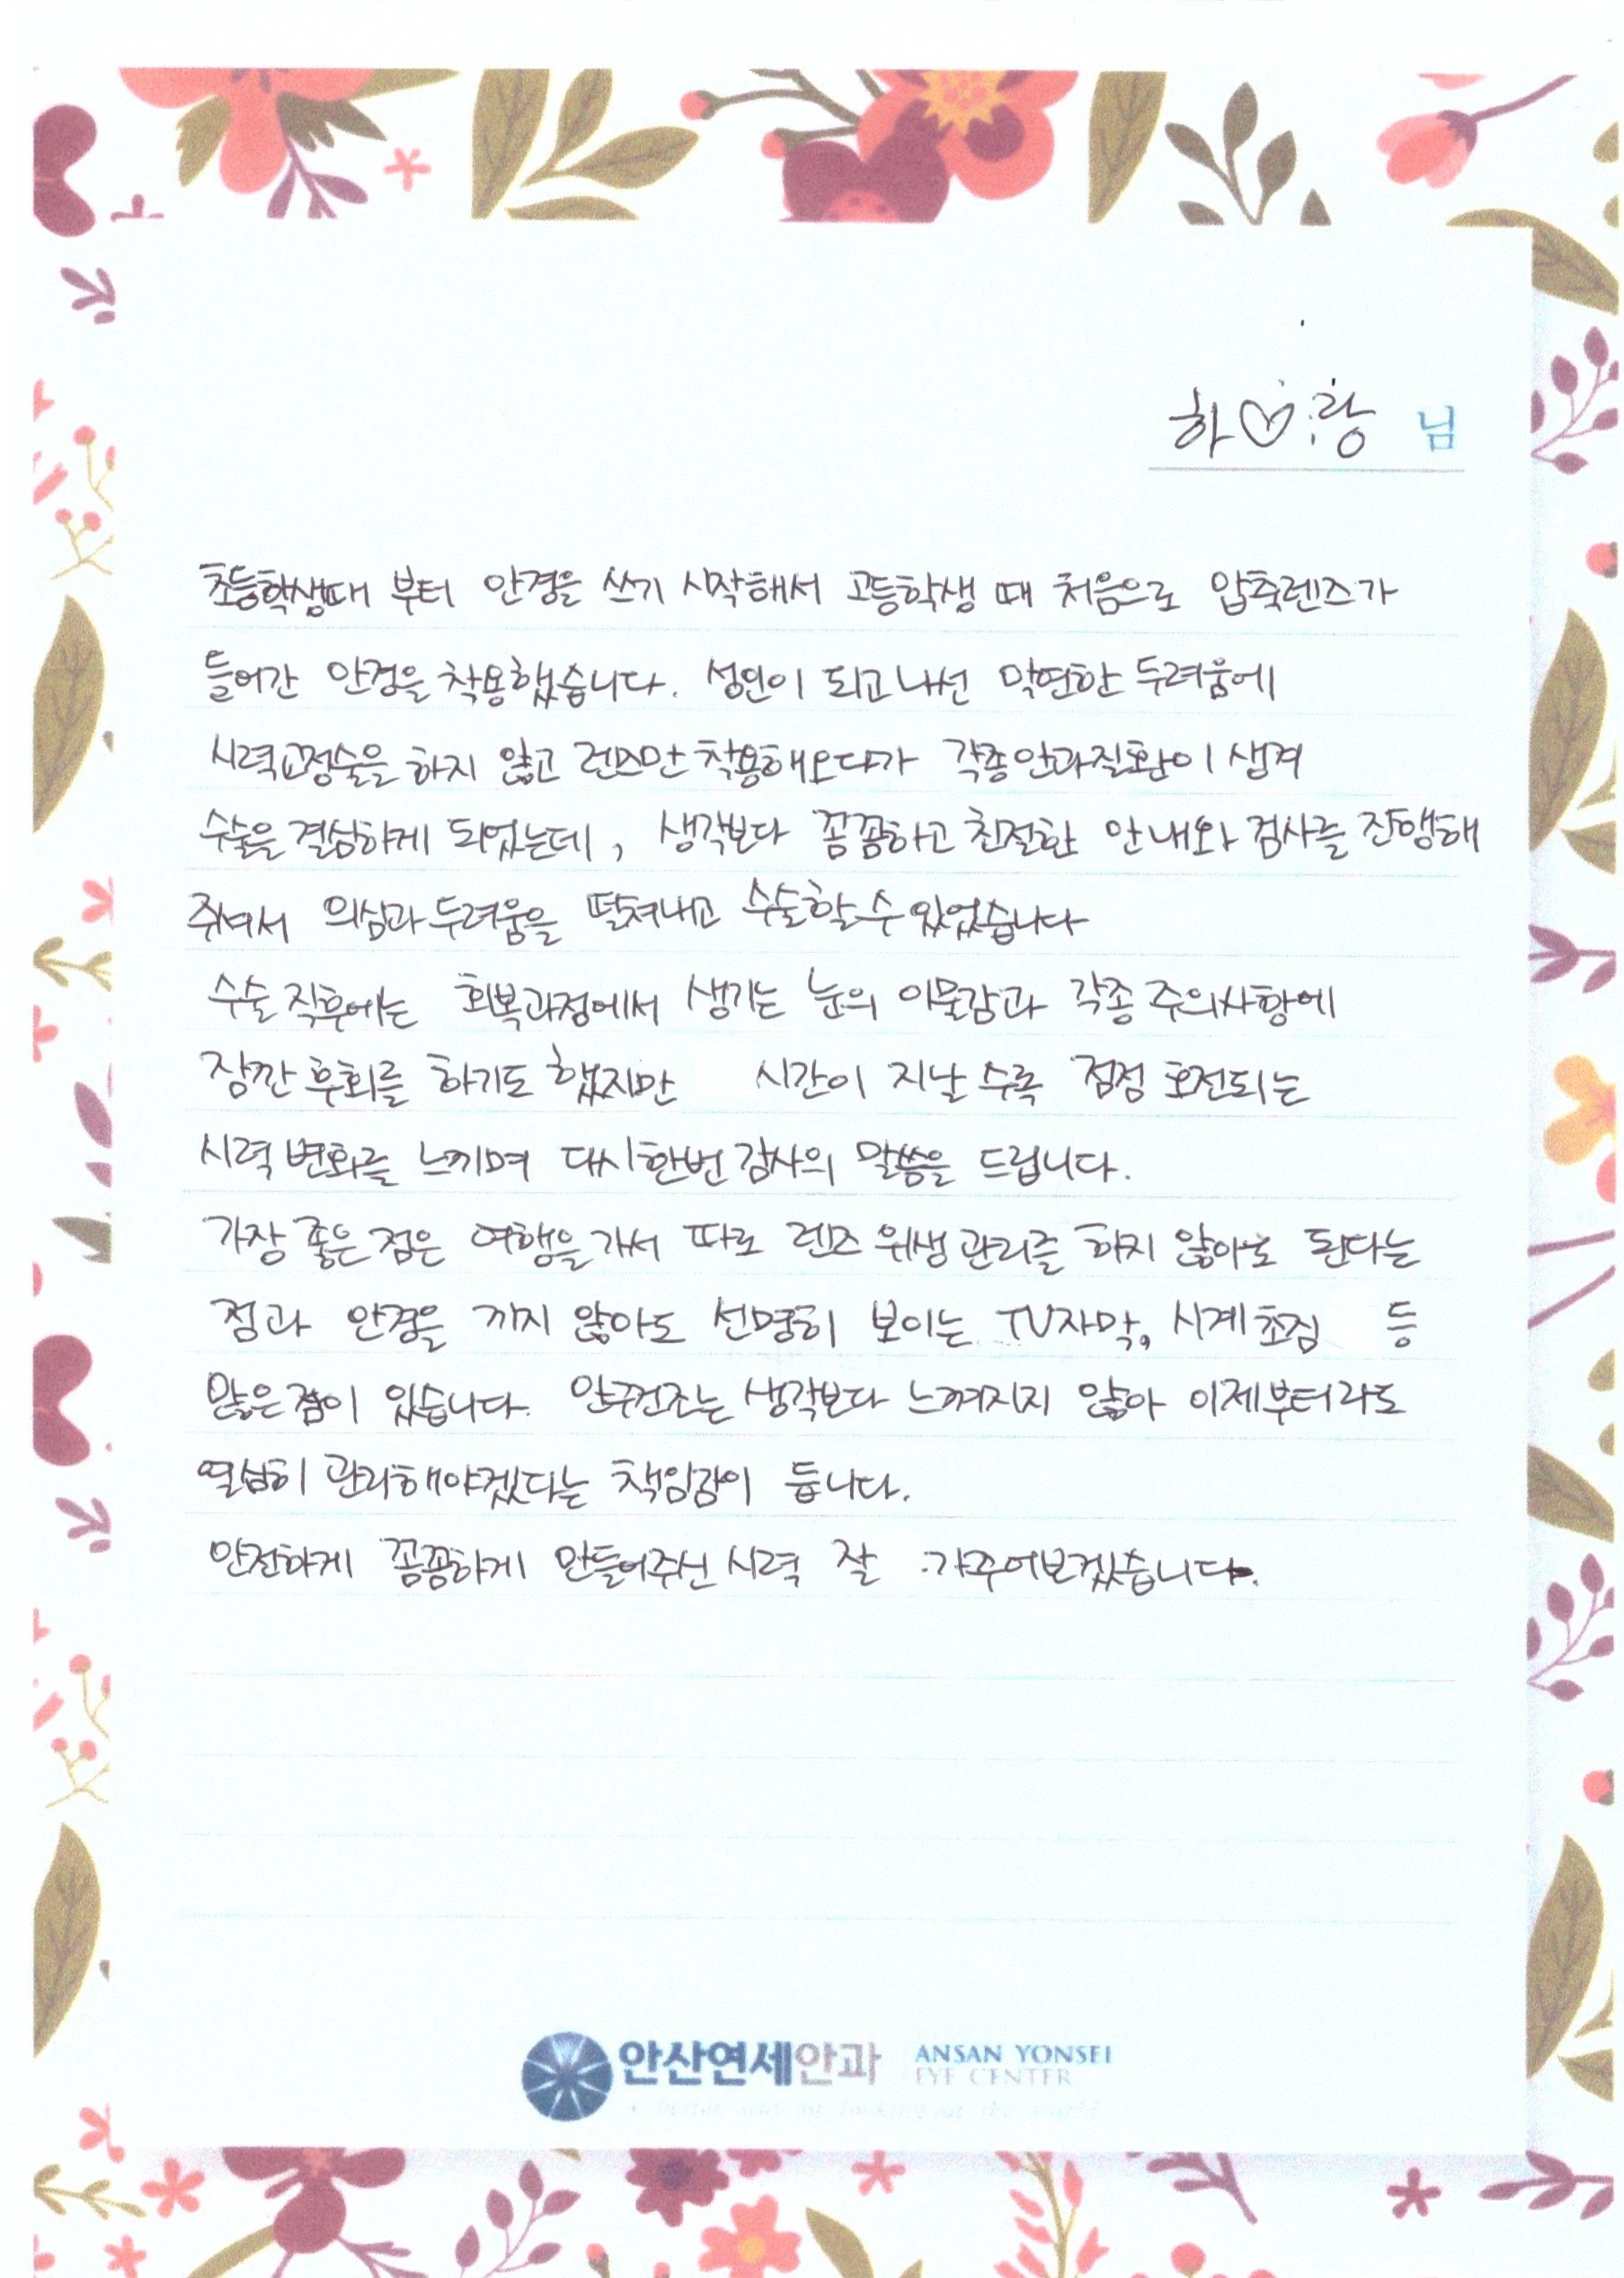 하♡랑 님
초등학생때 부터 안경을 쓰기 시작해서 고등학생 때 처음으로 압축렌즈가
들어간 안경을 착용했습니다. 성인이 되고나선 막연한 두려움에
시력교정술을 하지 않고 렌즈만 착용해오다가 각종안과질환이 생겨
수술을 결심하게 되었는데, 생각보다 꼼꼼하고 친절한 안내와 검사를 진행해
주셔서 의심과 두려움을 떨쳐내고 수술할 수 있었습니다
수술 직후에는 회복과정에서 생기는 눈의 이물감과 각종 주의사항에
잠깐 후회를 하기도 했지만 시간이 지날 수록 점점 호전되는
시력 변화를 느끼며 다시한번 감사의 말씀을 드립니다.
가장 좋은 점은 여행을 가서 따로 렌즈 위생관리를 하지 않아도 된다는
점과 안경을 끼지 않아도 선명히 보이는 TV자막, 시계초침 등
많은 점이 있습니다. 안구건조는 생각보다 느껴지지 않아 이제부터라도
열심히 관리해야겠다는 책임감이 듭니다.
안전하게 꼼꼼하게 만들어주신 시력 잘 가꾸어보겠습니다.
안산연세안과 ANSAN YONSEI
EYE CENTER